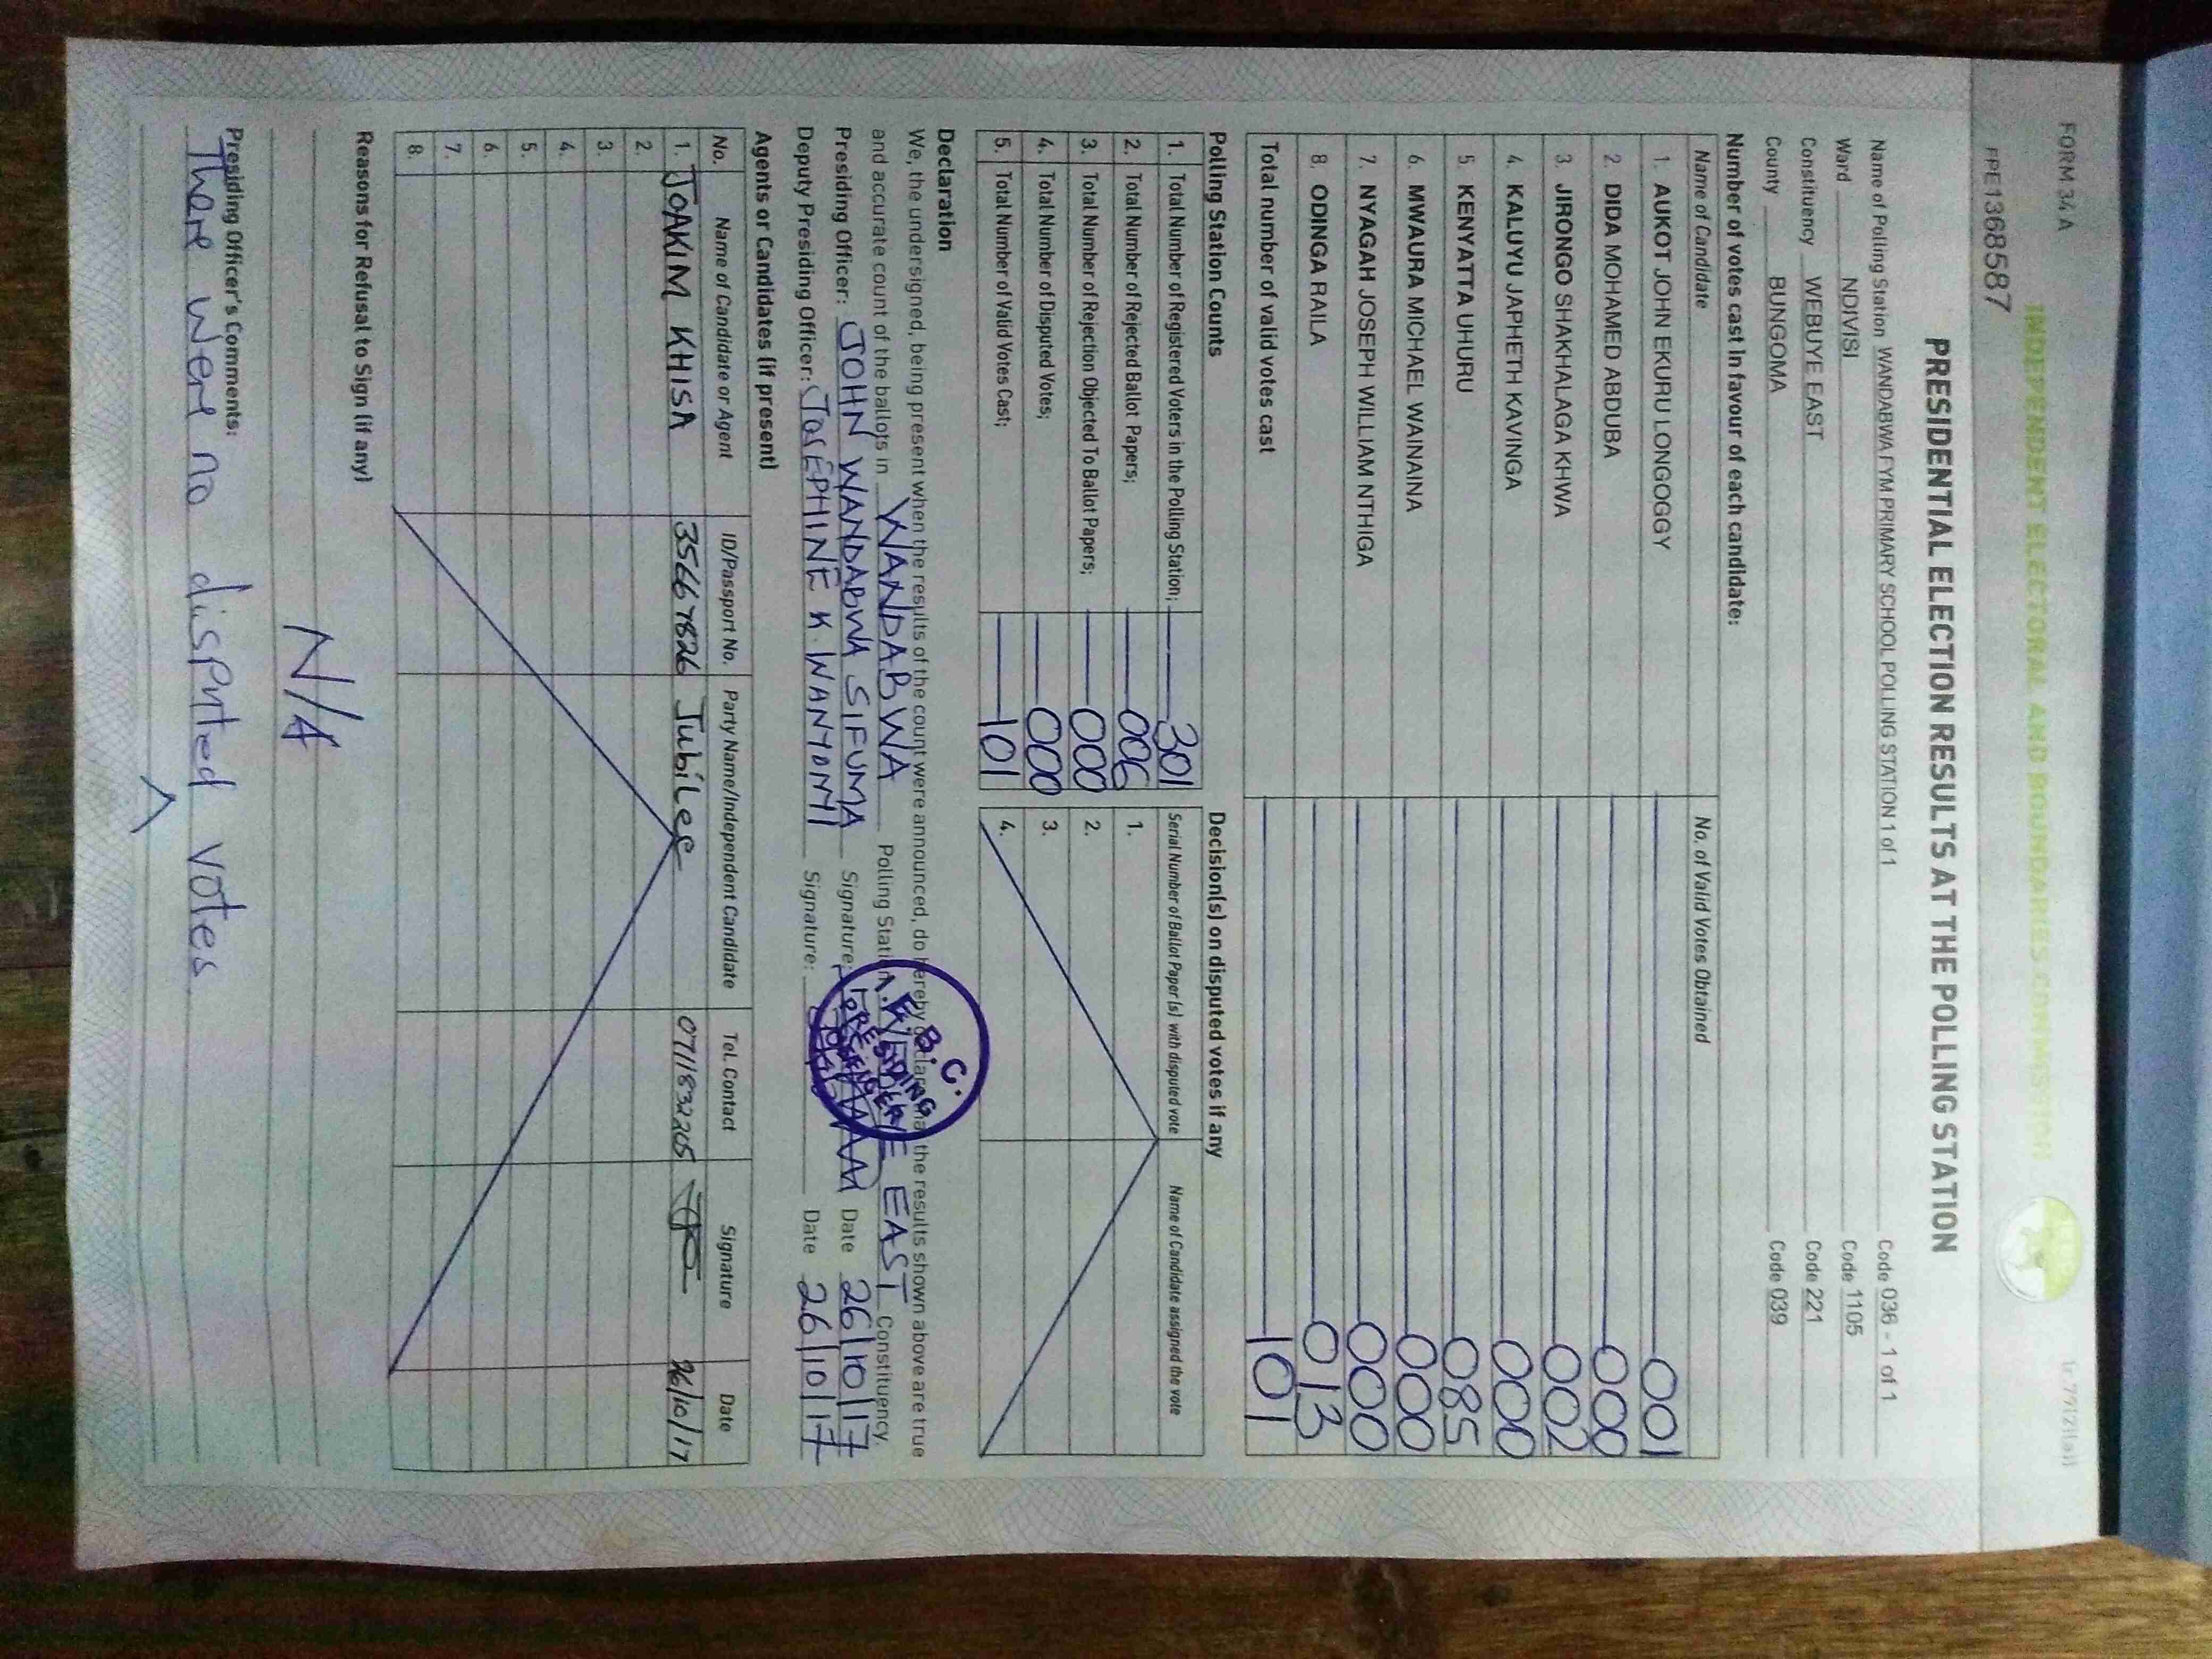 FORM 34 A
INDEPENDENT ELECTORAL AND BOUNDARIES COMMISSION
(r.79(2)(a))
FPE1368587
PRESIDENTIAL ELECTION RESULTS AT THE POLLING STATION
Name of Polling Station WANDABWA FYM PRIMARY SCHOOL POLLING STATION 1 of 1 Code 036 - 1 of 1
Ward NDIVISI Code 1105
Constituency WEBUYE EAST Code 221
County BUNGOMA Code 039
Number of votes cast in favour of each candidate:
Name of Candidate No. of Valid Votes Obtained
1. AUKOT JOHN EKURU LONGOGGY 001
2. DIDA MOHAMED ABDUBA 000
3. JIRONGO SHAKHALAGA KHWA 002
4. KALUYU JAPHETH KAVINGA 000
5. KENYATTA UHURU 085
6. MWAURA MICHAEL WAINAINA 000
7. NYAGAH JOSEPH WILLIAM NTHIGA 000
8. ODINGA RAILA 013
Total number of valid votes cast 101
Polling Station Counts
1. Total Number of Registered Voters in the Polling Station; 301
2. Total Number of Rejected Ballot Papers; 006
3. Total Number of Rejection Objected To Ballot Papers; 000
4. Total Number of Disputed Votes; 000
5. Total Number of Valid Votes Cast; 101
Decision(s) on disputed votes if any
Serial Number of Ballot Paper(s) with disputed vote Name of Candidate assigned the vote
1.
2.
3.
4.
Declaration
We, the undersigned, being present when the results of the count were announced, do hereby declare that the results shown above are true
and accurate count of the ballots in WANDABWA Polling Station, WEBUYE EAST Constituency.
Presiding Officer: JOHN WANDABWA SIFUMA Signature: Date 26/10/17
Deputy Presiding Officer: JOSEPHINE K. WANYONYI Signature: Date 26/10/17
I.E.B.C.
PRESIDING
OFFICER
Agents or Candidates (if present)
No. Name of Candidate or Agent ID/Passport No. Party Name/Independent Candidate Tel. Contact Signature Date
1. JOAKIM KHISA 35667826 Jubilee 0711832205 26/10/17
2.
3.
4.
5.
6.
7.
8.
Reasons for Refusal to Sign (if any)
N/A
Presiding Officer's Comments:
There were no disputed votes.